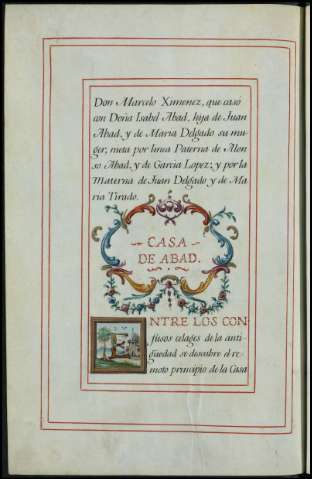 Don Marcelo Ximenez, que casó
con Doña Isabel Abad, hija de Juan
Abad, y de Maria Delgado su mu-
ger, nieta por linea Paterna de Alon-
so Abad, y de Garcia Lopez; y por la
Materna de Juan Delgado y de Ma-
ria Tirado.
CASA
DE ABAD.
ENTRE LOS CON-
fusos celages de la anti-
güedad se descubre el re-
moto principio de la Casa